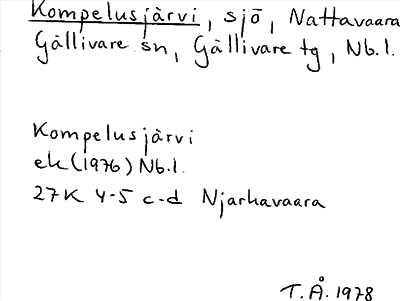 Kompelusjärvi, sjö, Nattavaara
Gällivare sn, Gällivare tg, Nb.l.
Kompelusjärvi
ek (1976) Nb.l.
27K 4-5 c-d Njarkavaara
T.Å. 1978